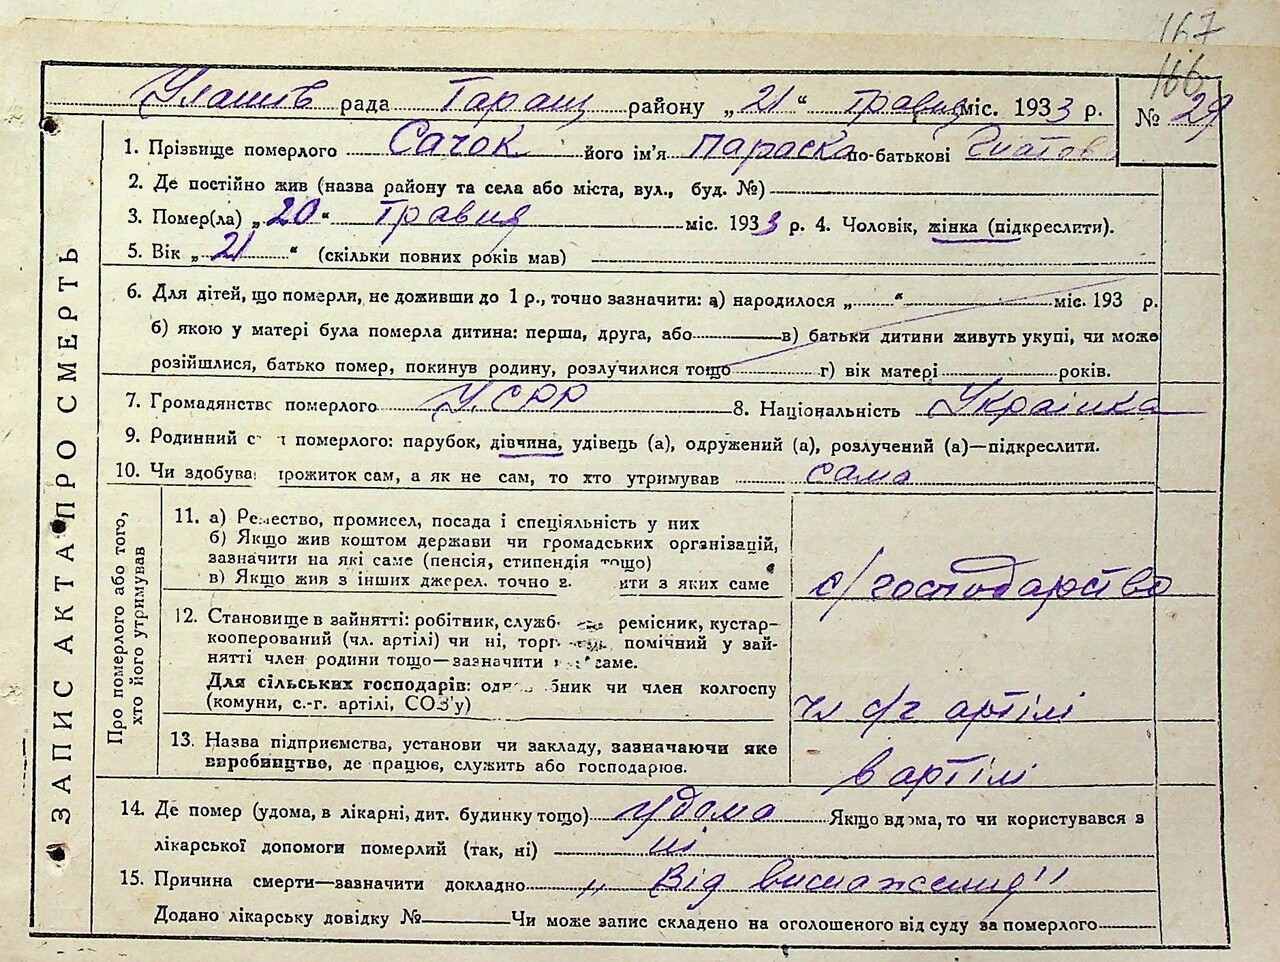 167
166
Улашів рада Таращ району „21“ травня міс. 1933 р. № 29
1. Прізвище померлого Сачок його ім'я Параска по-батькові Гнатов
2. Де постійно жив (назва району та села або міста, вул., буд. №)
3. Помер(ла) „20“ травня міс. 1933 р. 4. Чоловік, жінка (підкреслити).
5. Вік „21“ (скільки повних років мав)
6. Для дітей, що померли, не доживши до 1 р., точно зазначити: а) народилося „ “ міс. 193 р.
б) якою у матері була померла дитина: перша, друга, або в) батьки дитини живуть укупі, чи може
розійшлися, батько помер, покинув родину, розлучилися тощо г) вік матері років.
7. Громадянство померлого УСРР 8. Національність Українка
9. Родинний с н померлого: парубок, дівчина, удівець (а), одружений (а), розлучений (а)—підкреслити.
10. Чи здобува прожиток сам, а як не сам, то хто утримував сама
ЗАПИС АКТА ПРО СМЕРТЬ
Про померлого або того,
хто його утримував
11. а) Ремество, промисел, посада і спеціяльність у них
б) Якщо жив коштом держави чи громадських організацій,
зазначити на які саме (пенсія, стипендія тощо)
в) Якщо жив з інших джерел, точно з ити з яких саме
с/господарство
12. Становище в зайнятті: робітник, служб ремісник, кустар-
кооперований (чл. артілі) чи ні, торг помічний у зай-
нятті член родини тощо—зазначити саме.
Для сільських господарів: одноосібник чи член колгоспу
(комуни, с.-г. артілі, СОЗ'у)
чл с/г артілі
13. Назва підприємства, установи чи закладу, зазначаючи яке
виробництво, де працює, служить або господарює.
в артілі
14. Де помер (удома, в лікарні, дит. будинку тощо) удома Якщо вдома, то чи користувався з
лікарської допомоги померлий (так, ні) ні
15. Причина смерти—зазначити докладно „Від виснаження"
Додано лікарську довідку № Чи може запис складено на оголошеного від суду за померлого